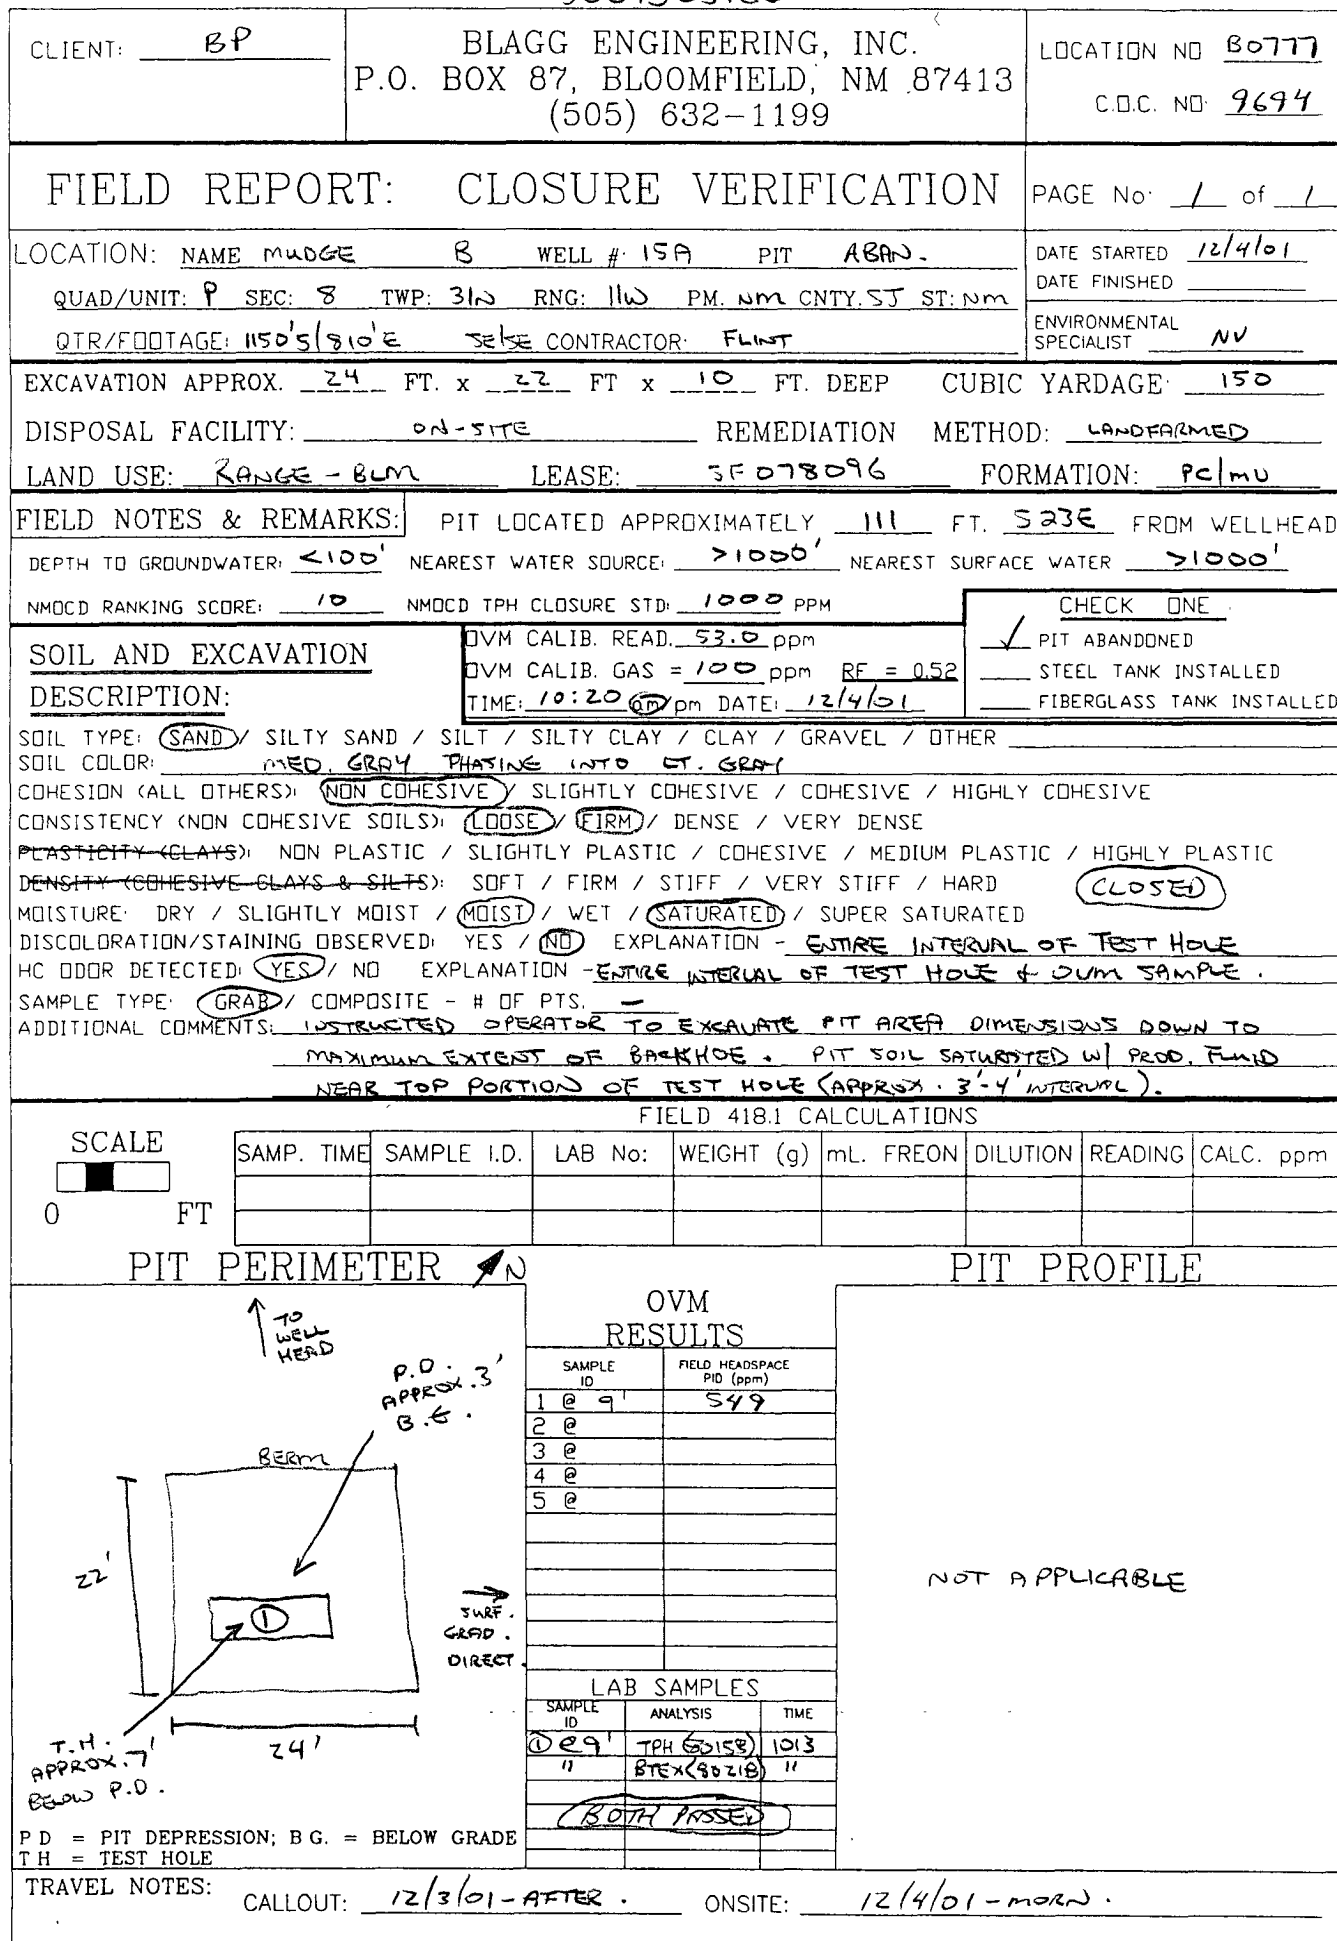 CLIENT: BP
BLAGG ENGINEERING, INC.
P.O. BOX 87, BLOOMFIELD, NM 87413
(505) 632-1199
LOCATION NO B0777
C.O.C. NO: 9694
FIELD REPORT: CLOSURE VERIFICATION
PAGE No: 1 of 1
LOCATION: NAME MUDGE B WELL #: 15A PIT ABAN.
QUAD/UNIT: P SEC: 8 TWP: 31N RNG: 11W PM: NM CNTY: SJ ST: NM
QTR/FOOTAGE: 1150'S/810'E SE/SE CONTRACTOR: FLINT
DATE STARTED 12/4/01
DATE FINISHED
ENVIRONMENTAL
SPECIALIST NV
EXCAVATION APPROX. 24 FT. x 22 FT x 10 FT. DEEP CUBIC YARDAGE: 150
DISPOSAL FACILITY: ON-SITE REMEDIATION METHOD: LANDFARMED
LAND USE: RANGE - BLM LEASE: SF 078096 FORMATION: PC/MV
FIELD NOTES & REMARKS: PIT LOCATED APPROXIMATELY 111 FT. S23E FROM WELLHEAD
DEPTH TO GROUNDWATER: <100' NEAREST WATER SOURCE: >1000' NEAREST SURFACE WATER >1000'
NMOCD RANKING SCORE: 10 NMOCD TPH CLOSURE STD: 1000 PPM
CHECK ONE
✓ PIT ABANDONED
STEEL TANK INSTALLED
FIBERGLASS TANK INSTALLED
SOIL AND EXCAVATION
DESCRIPTION:
OVM CALIB. READ. 53.0 ppm
OVM CALIB. GAS = 100 ppm RF = 0.52
TIME: 10:20 am/pm DATE: 12/4/01
SOIL TYPE: SAND / SILTY SAND / SILT / SILTY CLAY / CLAY / GRAVEL / OTHER
SOIL COLOR: MED. GRAY PHASING INTO LT. GRAY
COHESION (ALL OTHERS): NON COHESIVE / SLIGHTLY COHESIVE / COHESIVE / HIGHLY COHESIVE
CONSISTENCY (NON COHESIVE SOILS): LOOSE / FIRM / DENSE / VERY DENSE
PLASTICITY (CLAYS): NON PLASTIC / SLIGHTLY PLASTIC / COHESIVE / MEDIUM PLASTIC / HIGHLY PLASTIC
DENSITY (COHESIVE CLAYS & SILTS): SOFT / FIRM / STIFF / VERY STIFF / HARD CLOSED
MOISTURE: DRY / SLIGHTLY MOIST / MOIST / WET / SATURATED / SUPER SATURATED
DISCOLORATION/STAINING OBSERVED: YES / NO EXPLANATION - ENTIRE INTERVAL OF TEST HOLE
HC ODOR DETECTED: YES / NO EXPLANATION - ENTIRE INTERVAL OF TEST HOLE & OVM SAMPLE.
SAMPLE TYPE: GRAB / COMPOSITE - # OF PTS. -
ADDITIONAL COMMENTS: INSTRUCTED OPERATOR TO EXCAVATE PIT AREA DIMENSIONS DOWN TO
MAXIMUM EXTENT OF BACKHOE. PIT SOIL SATURATED W/ PROD. FLUID
NEAR TOP PORTION OF TEST HOLE (APPROX. 3'-4' INTERVAL).
FIELD 418.1 CALCULATIONS
SCALE
0 FT
SAMP. TIME SAMPLE I.D. LAB No: WEIGHT (g) mL. FREON DILUTION READING CALC. ppm
PIT PERIMETER N
PIT PROFILE
TO
WELL
HEAD
P.D.
APPROX. 3'
B.G.
BERM
22'
1
24'
SURF.
GRAD.
DIRECT.
T.H.
APPROX. 7'
BELOW P.D.
OVM
RESULTS
SAMPLE ID FIELD HEADSPACE PID (ppm)
1 @ 9' 549
2 @
3 @
4 @
5 @
LAB SAMPLES
SAMPLE ID ANALYSIS TIME
1 @ 9' TPH (8015B) 1013
" BTEX (8021B) "
BOTH PASSED
NOT APPLICABLE
P D = PIT DEPRESSION; B G. = BELOW GRADE
T H = TEST HOLE
TRAVEL NOTES: CALLOUT: 12/3/01 - AFTER. ONSITE: 12/4/01 - MORN.